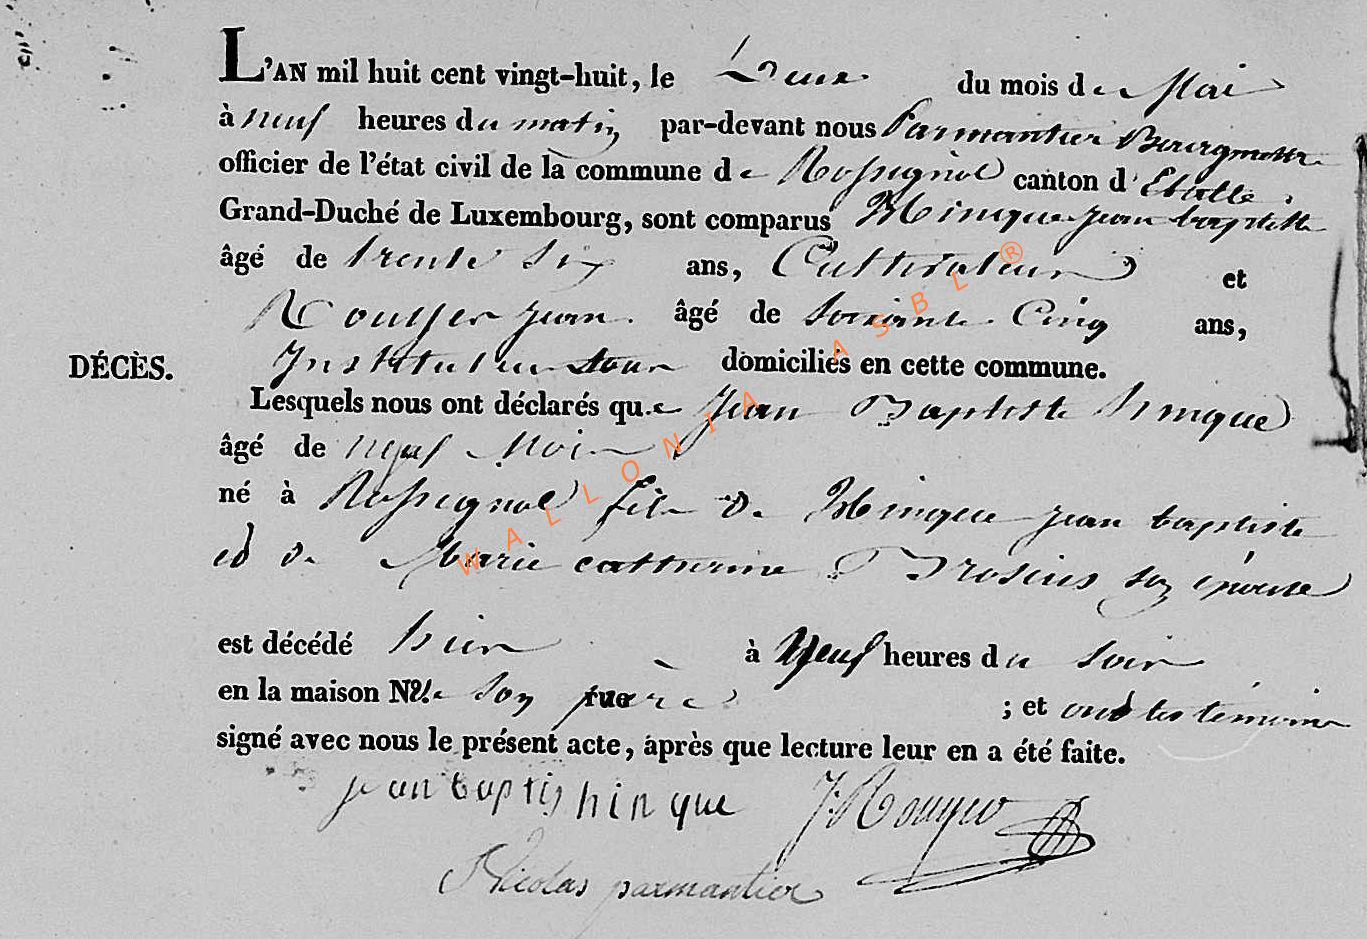 L'AN mil huit cent vingt-huit, le Deux du mois de Mai
à neuf heures du matin par-devant nous Parmantier Bourgmestre
officier de l'état civil de la commune de Rossignol canton d'Etalle,
Grand-Duché de Luxembourg, sont comparus Hinque jean baptiste
âgé de trente Six ans, Cultivateur et
jean âgé de Soixante Cinq ans,
DÉCÈS. Instituteur domiciliés en cette commune.
Lesquels nous ont déclarés que Jean Baptiste hinque
âgé de neuf Mois
né à Rossignol fils de Hinque jean baptiste
et de Marie catherine Brosius son épouse
est décédé hier à Neuf heures du Soir
en la maison N.º de Son père ; et ont les témoins
signé avec nous le présent acte, après que lecture leur en a été faite.
jean baptis hinque
Nicolas parmantier
WALLONIA ASBL ®